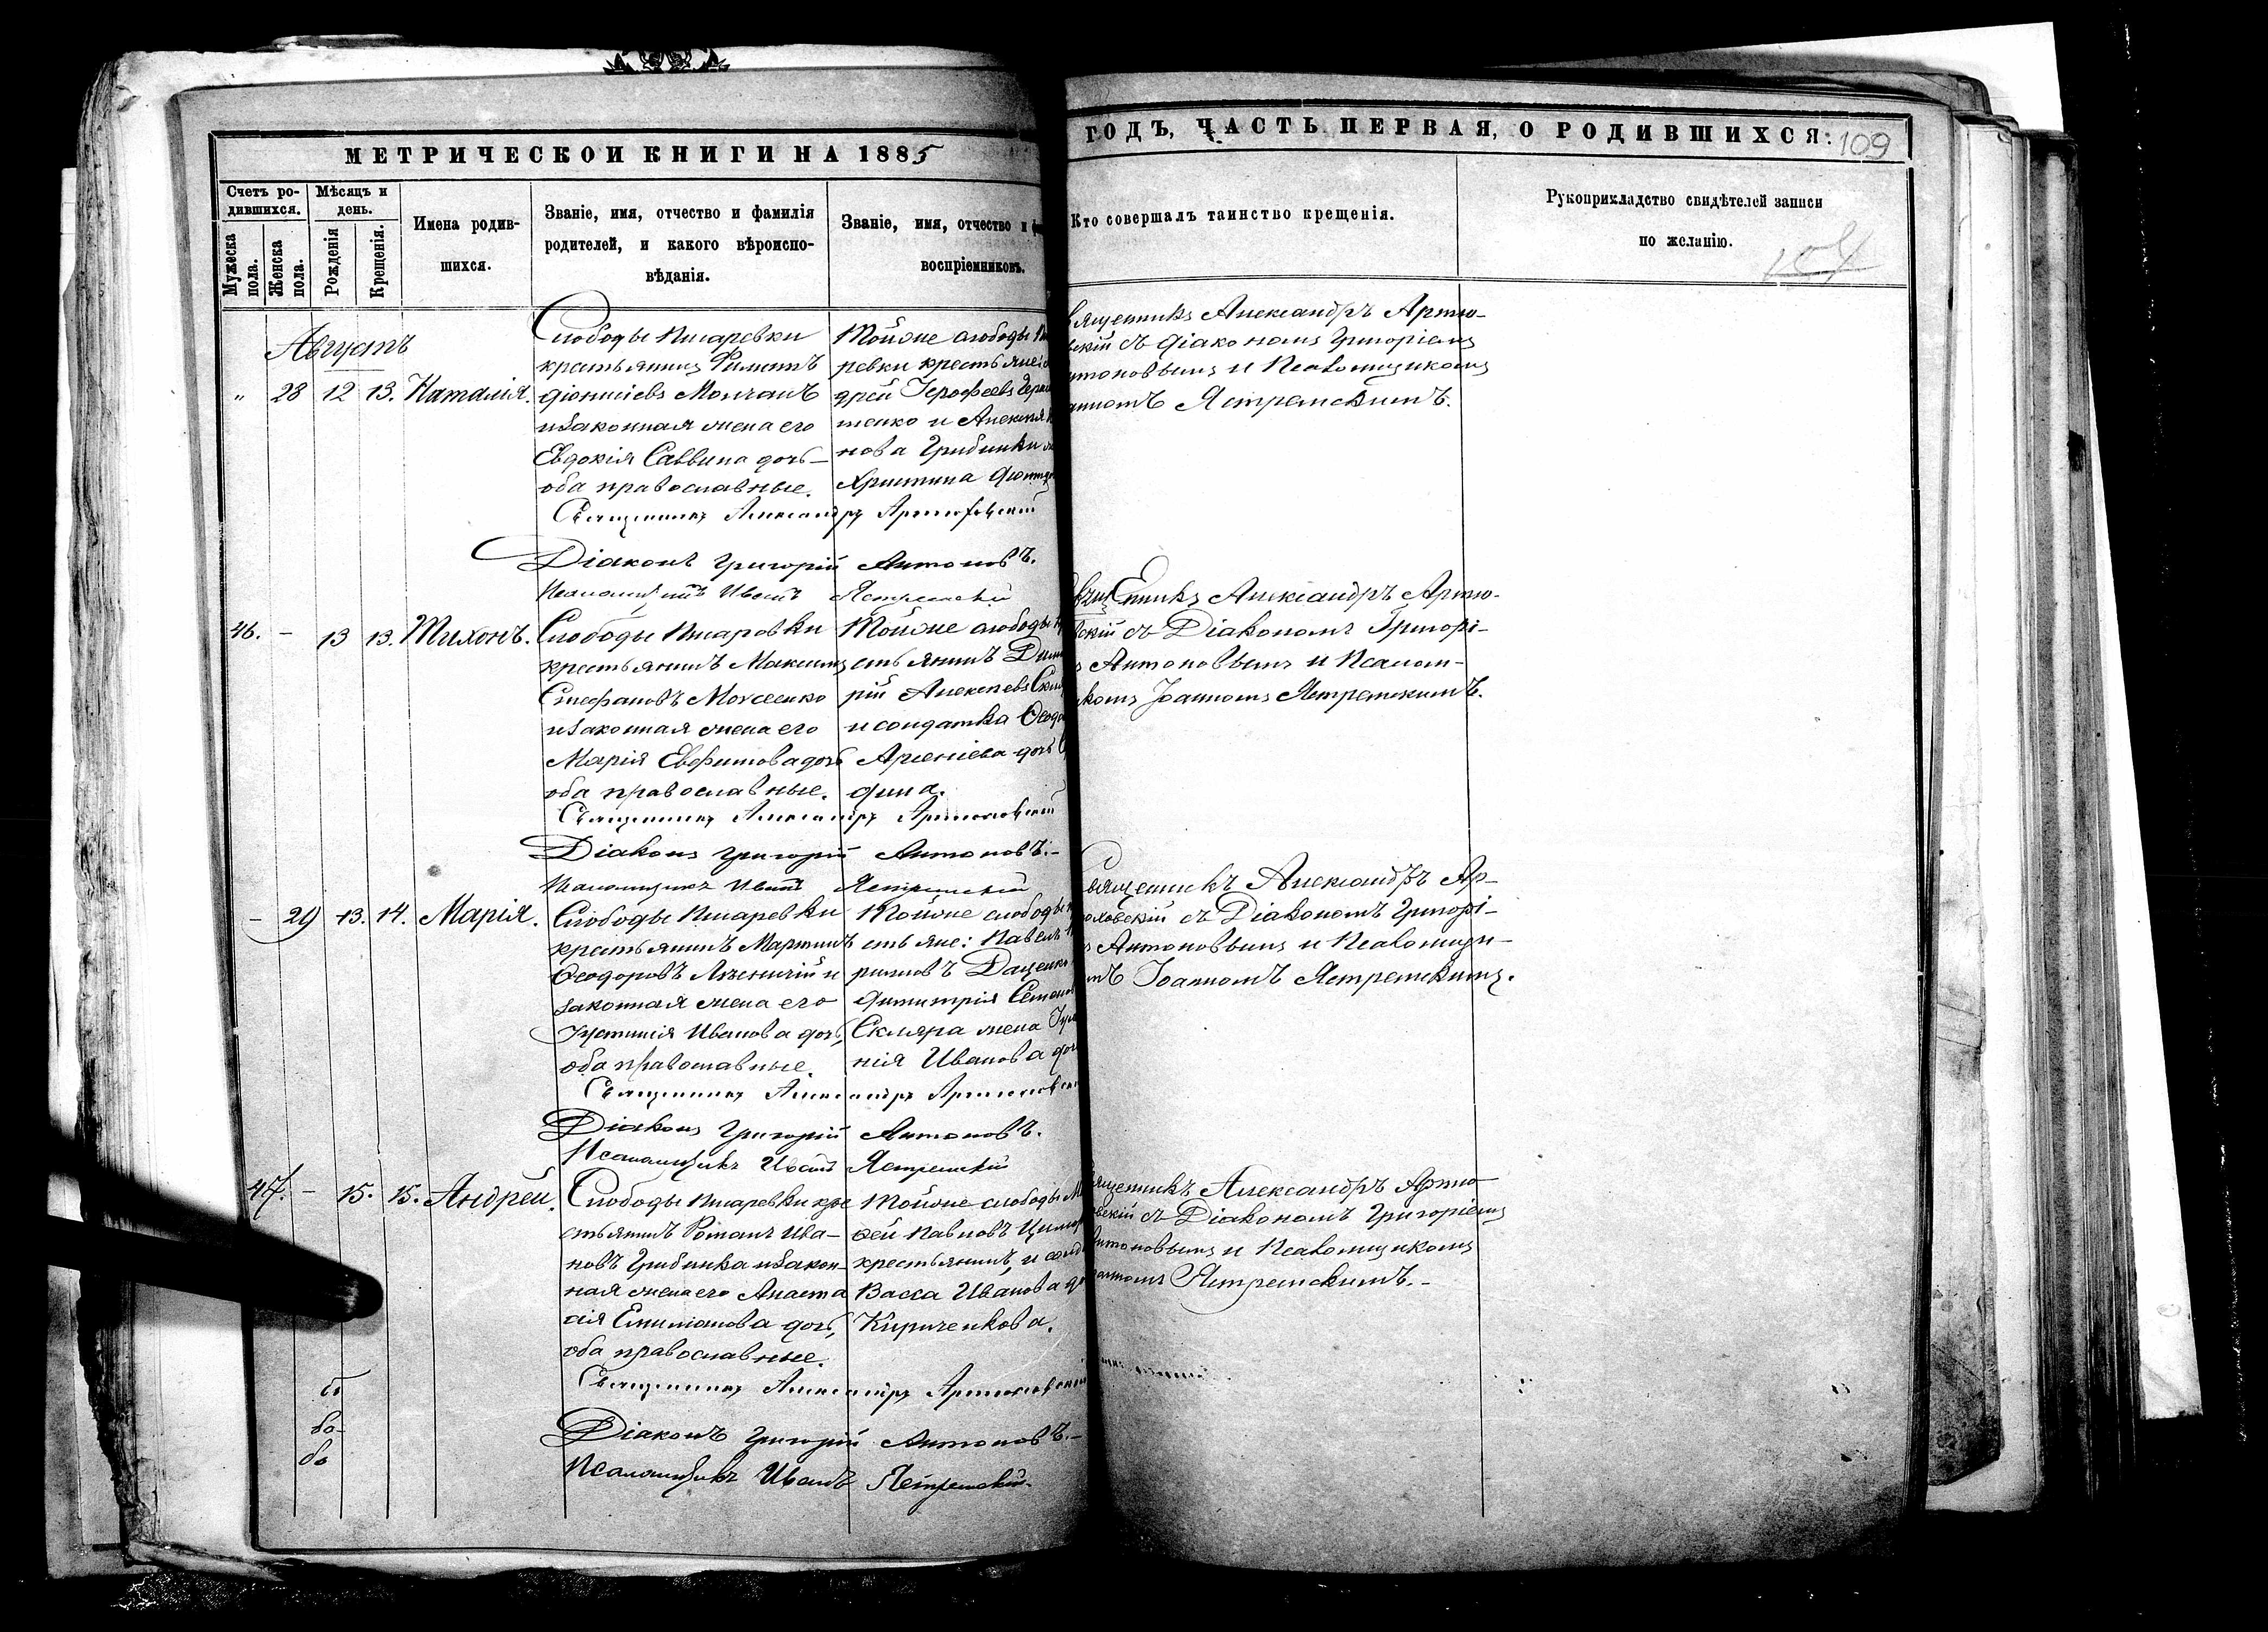 МЕТРИЧЕСКОЙ КНИГИ НА 1885
ГОДЪ, ЧАСТЬ ПЕРВАЯ, О РОДИВШИХСЯ:
109
Счетъ ро-
дившихся.
Мѣсяцъ и
день.
Мужеска
пола.
Женска
пола.
Рожденія
Крещенія.
Имена родив-
шихся.
Званіе, имя, отчество и фамилія
родителей, и какого вѣроиспо-
вѣданія.
Званіе, имя, отчество и
воспріемниковъ.
Кто совершалъ таинство крещенія.
Рукоприкладство свидѣтелей записи
по желанію.
Августъ
„ 28 12 13. Наталія.
Слободы Писаревки
крестьянинъ Филиппъ
Діонисіевъ Молчанъ
и законная жена его
Евдокія Саввина дочь
оба православные.
Тойже слободы
ревки крестьяне:
дрей Іерофеевъ
тенко и Алексѣя
нова Грибинки
Христина
Священникъ Александръ Артюховскій
Діаконъ Григорій Антоновъ.
Псаломщикъ Иванъ Ястремскій
Александръ Артю-
скій съ діакономъ Григоріемъ
Антоновымъ и Псаломщикомъ
Ястремскимъ.
46. – 13 13. Тихонъ.
Слободы Писаревки
крестьянинъ Максимъ
Стефановъ Мохеенко
и законная жена его
Марія Евфимова дочь
оба православные.
Тойже слободы
стьянинъ
рій Алексѣевъ
и солдатка
Арсеніева дочь
дина.
Священникъ Александръ Артюховскій
Діаконъ Григорій Антоновъ.-
Псаломщикъ Иванъ Ястремскій
Александръ Артю-
скій съ Діакономъ Григорі-
Антоновымъ и Псалом-
комъ Іоанномъ Ястремскимъ.
– 29 13. 14. Марія.
Слободы Писаревки
крестьянинъ Мартинъ
Ѳеодоровъ и
законная жена его
Іустинія Иванова дочь,
оба православные.
Тойже слободы
стьяне: Павелъ
Даценко
Димитрія
Скляра жена
нія Иванова
Священникъ Александръ Артюховскій
Діаконъ Григорій Антоновъ.
Псаломщикъ Иванъ Ястремскій
Священникъ Александръ Ар-
юховскій съ Діакономъ Григорі-
Антоновымъ и Псаломщи-
Іоанномъ Ястремскимъ.
47. – 15. 15. Андрей.
Слободы Писаревки кре
стьянинъ Романъ Ива-
новъ Грибинка и закон-
ная жена его Анаста
сія Емиліанова дочь,
оба православные.
Тойже слободы
сей Павловъ
крестьянинъ, и
Васса Иванова
Кириченкова.
Священникъ Александръ Артюховскій
Діаконъ Григорій Антоновъ.-
Псаломщикъ Иванъ Ястремскій.
Александръ Артю
скій съ Діакономъ Григоріемъ
Антоновымъ и Псаломщикомъ
Ястремскимъ.-